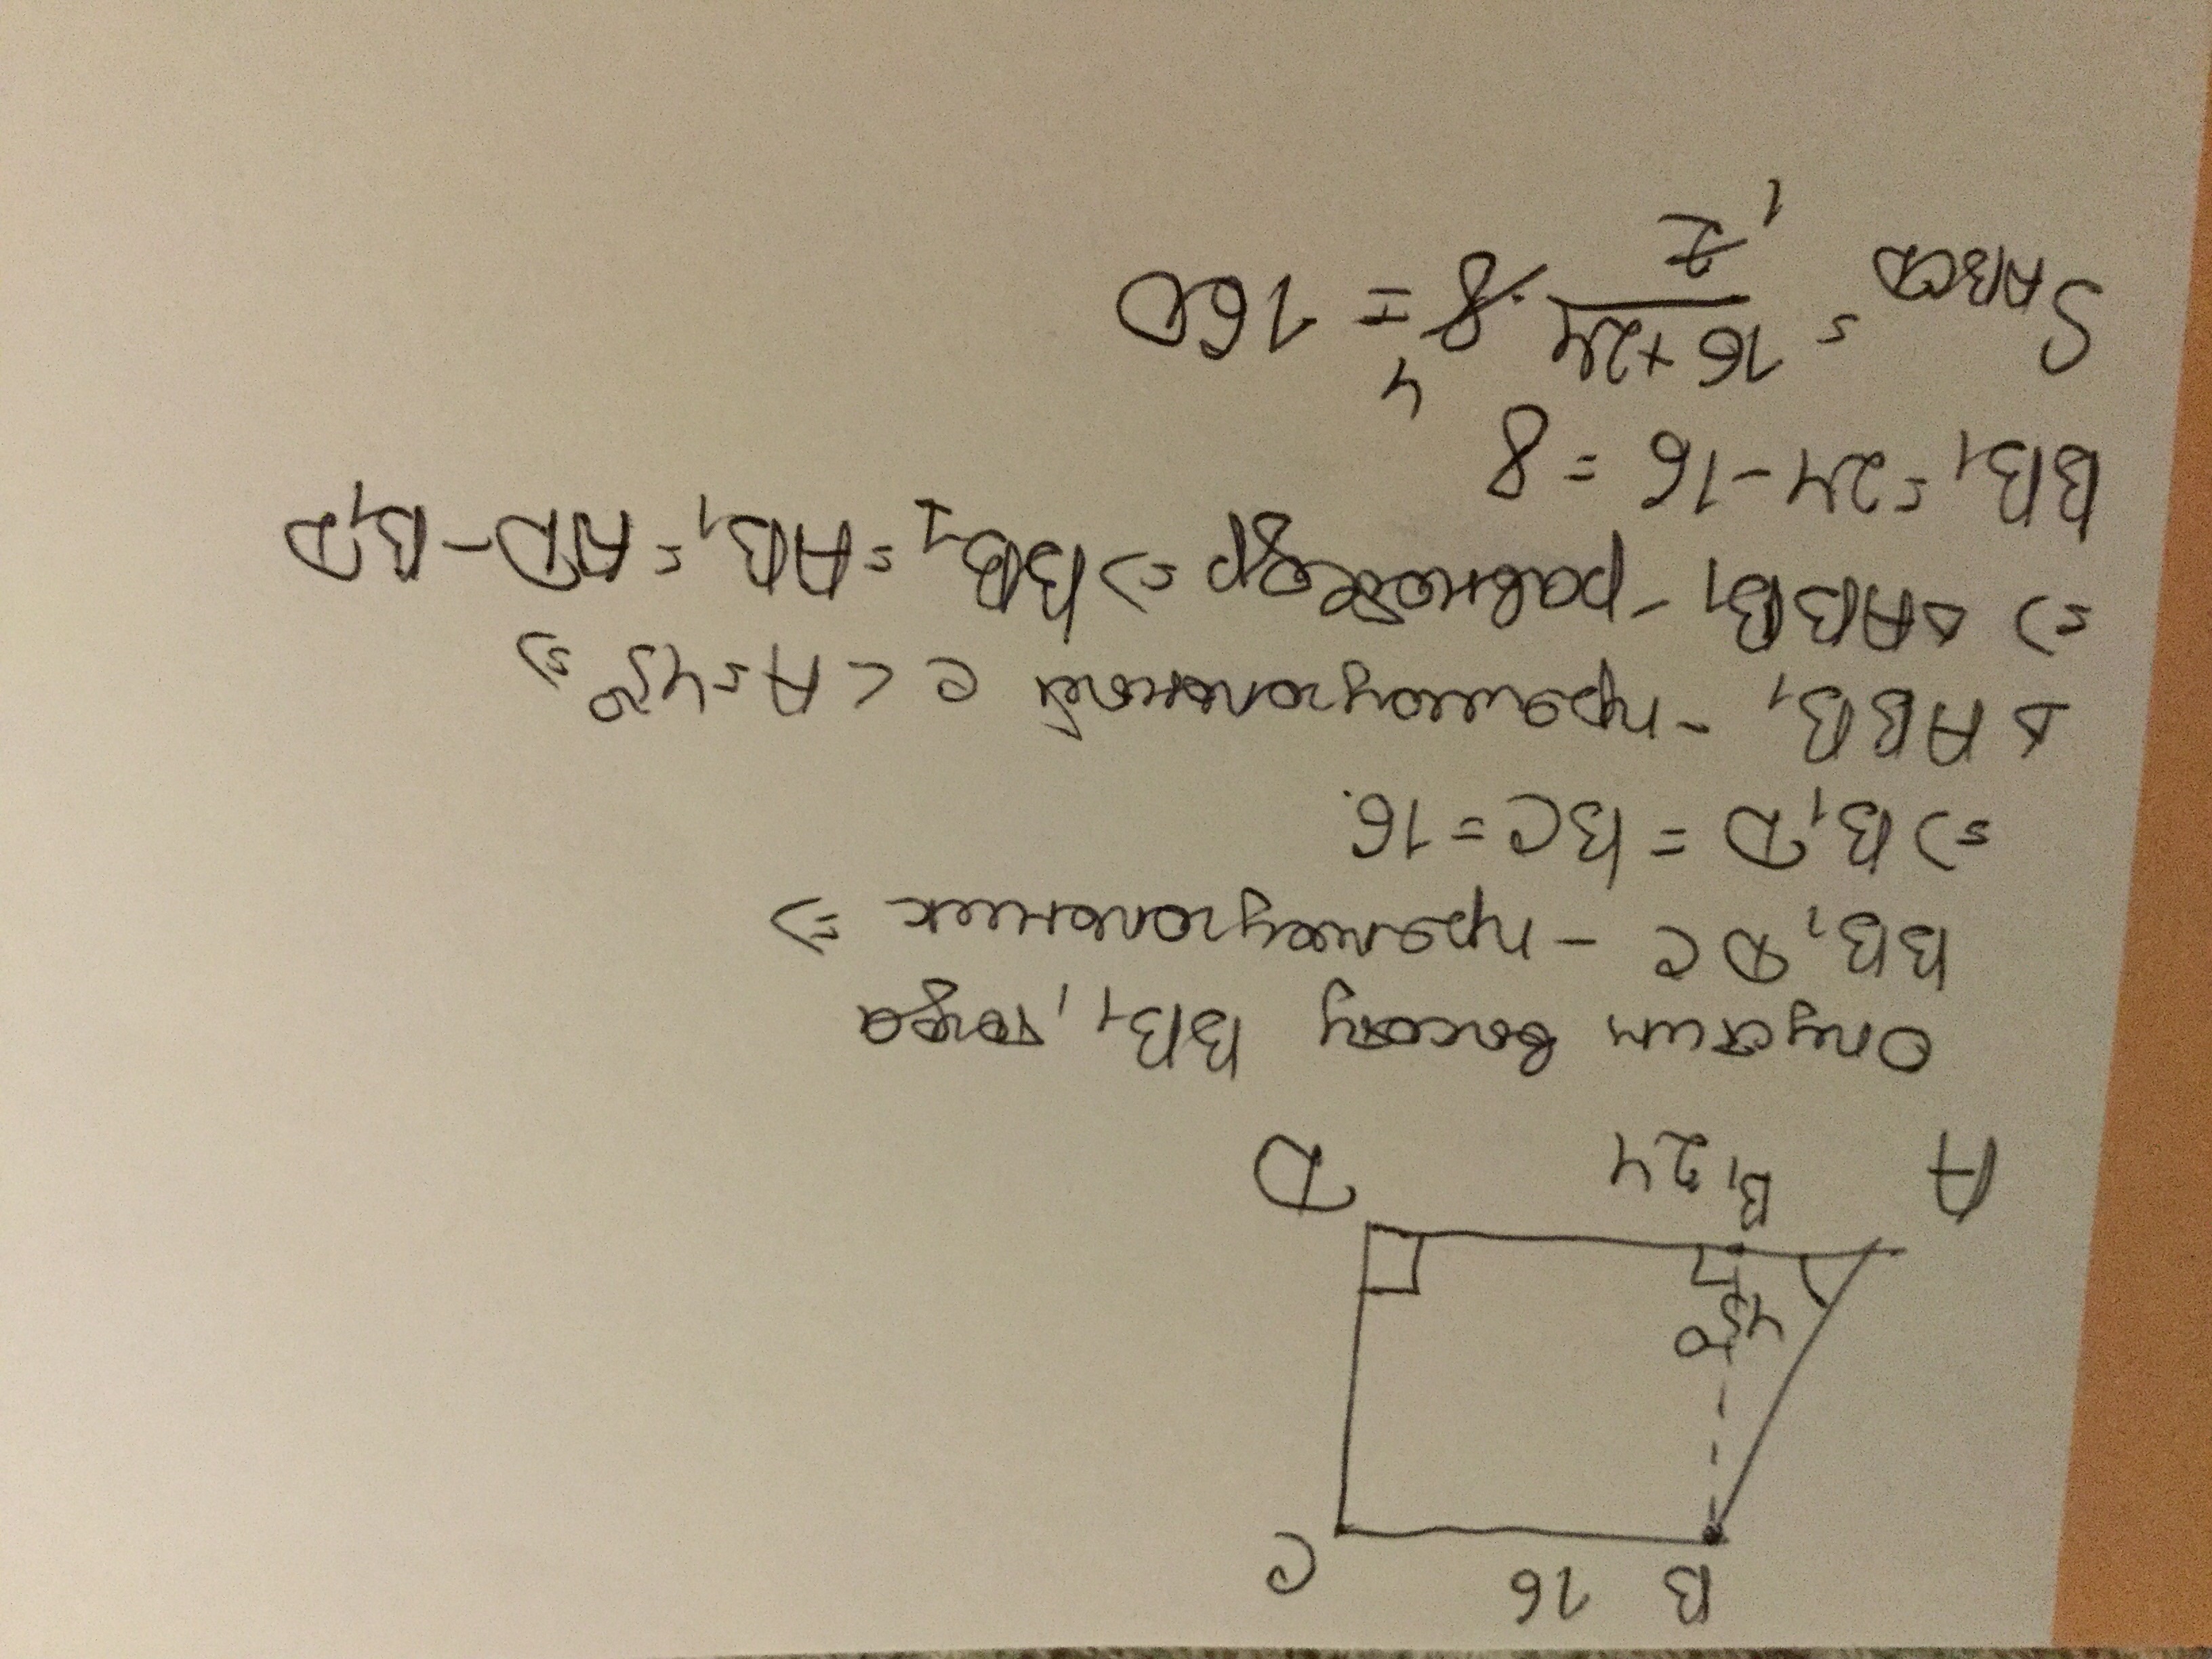 B 16 C
45°
A B₁ 24 D
Опустим высоту BB₁, тогда
BB₁DC - прямоугольник =>
=> B₁D = BC = 16.
△ABB₁ - прямоугольный с <A=45° =>
=> △ABB₁ - равнобедр => BB₁ = AB₁ = AD - B₁D
BB₁ = 24 - 16 = 8
S_ABCD = (16+24)/2 · 8 = 160
4
1